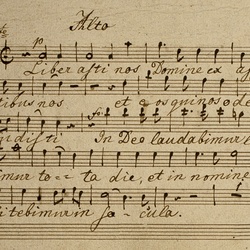 Alto
Liberasti nos Domine ex af
tibus nos et eos qui nos od
disti In Deo laudabimur
mur to = ta die, et in nomine
itebimur in sæcula.